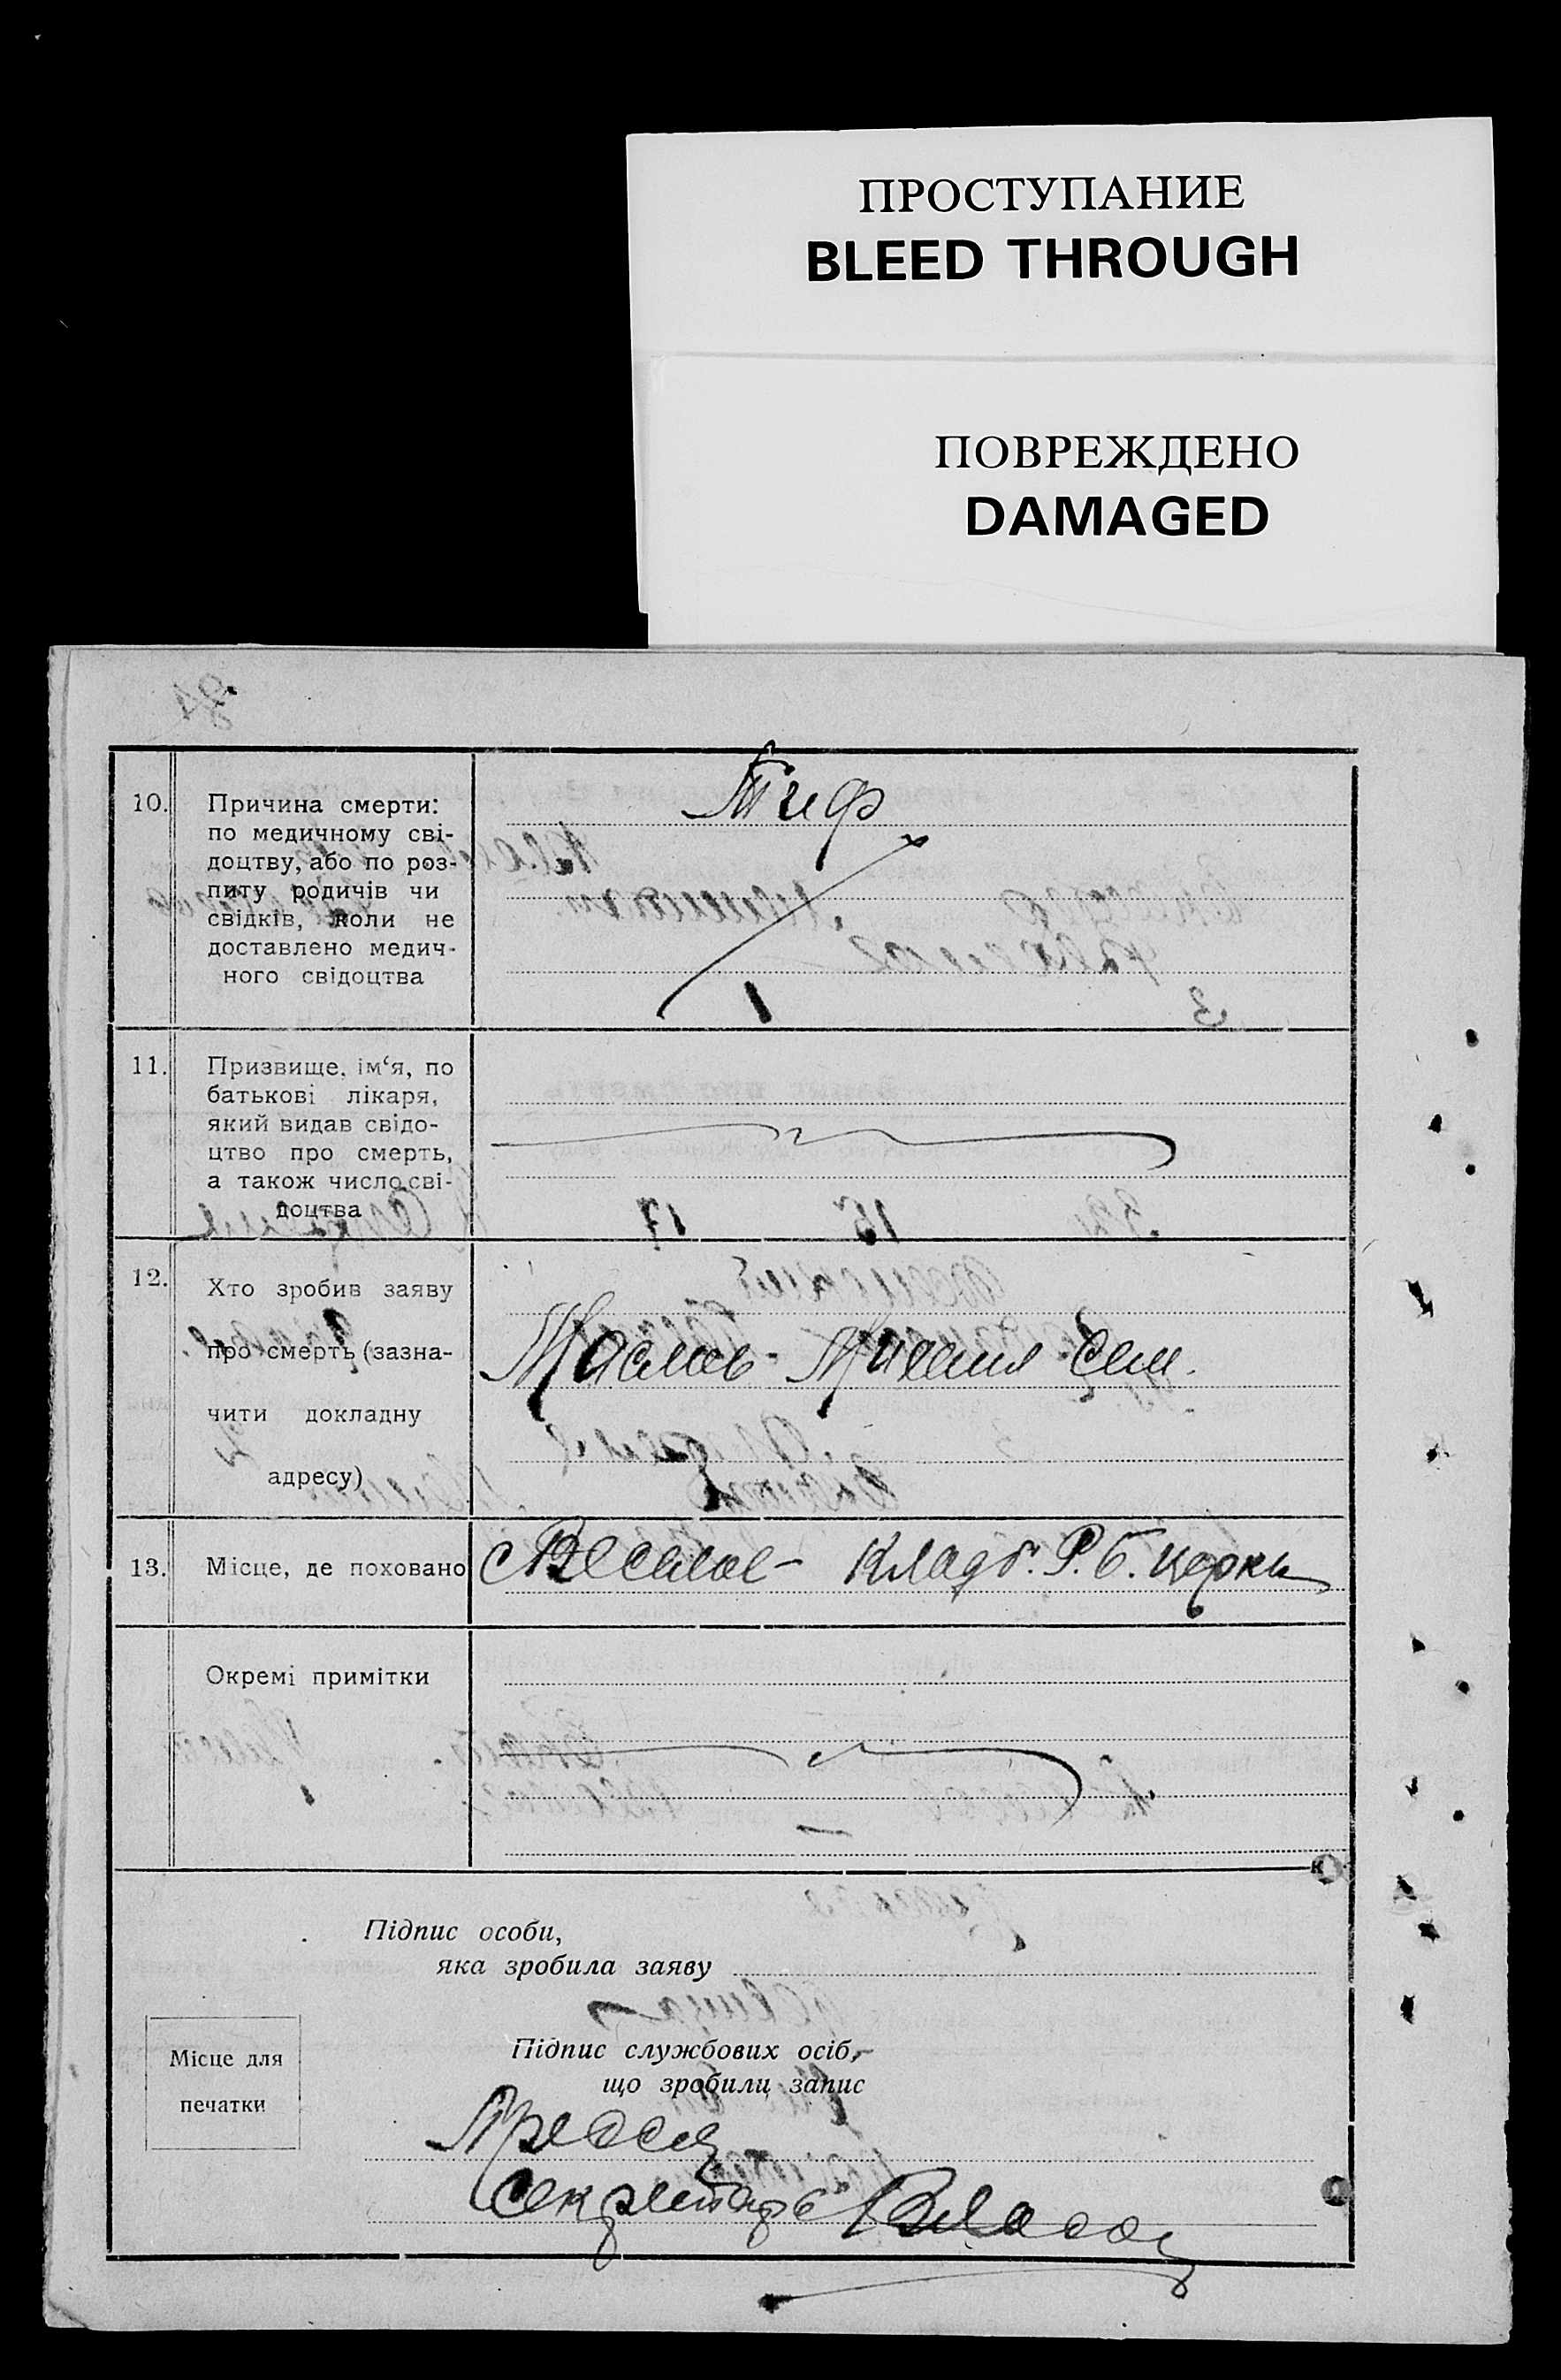 ПРОСТУПАНИЕ
BLEED THROUGH
ПОВРЕЖДЕНО
DAMAGED
10. Причина смерти:
по медичному сві-
доцтву, або по роз-
питу родичів чи
свідків, коли не
доставлено медич-
ного свідоцтва
Тиф
11. Призвище, ім‘я, по
батькові лікаря,
який видав свідо-
цтво про смерть,
а також число сві-
доцтва
12. Хто зробив заяву
про смерть (зазна-
чити докладну
адресу)
Маслов Михаил Сем.
13. Місце, де поховано
с Веселое - кладб. Р. б. церкви
Окремі примітки
Підпис особи,
яка зробила заяву
Місце для
печатки
Підпис службових осіб,
що зробили запис
секретарь